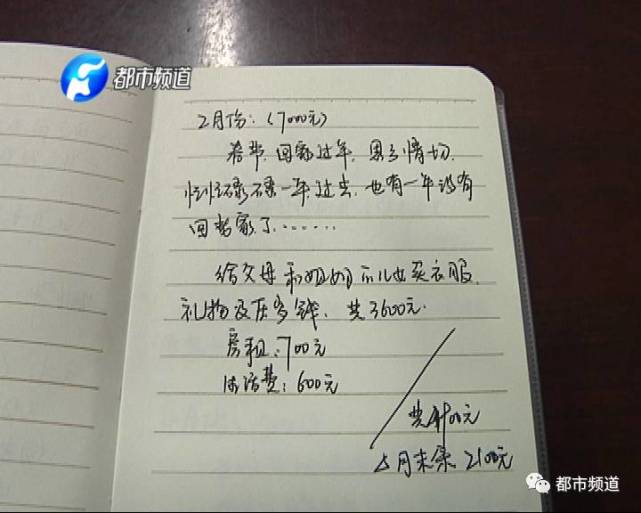 都市频道
2月份：（7000元）
春节，回家过年，思乡情切，
忙忙碌碌一年过去，也有一年没有
回老家了……
给父母和姐姐 儿女买衣服，
礼物及压岁钱，共3600元.
房租：700元
生活费：600元
共4900元
2月末余 2100元
都市频道